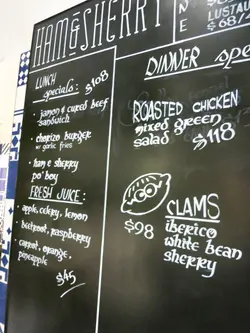 HAM & SHERRY
LUNCH
specials: $108
· jamon & cured beef
sandwich
· chorizo burger
w/ garlic fries
· ham & sherry
po' boy
FRESH JUICE:
· apple, celery, lemon
· beetroot, raspberry
· carrot, orange,
pineapple
$45
LUSTAU
$68/
DINNER spe
ROASTED CHICKEN
mixed green
salad $118
CLAMS
$98 iberico
white bean
sherry